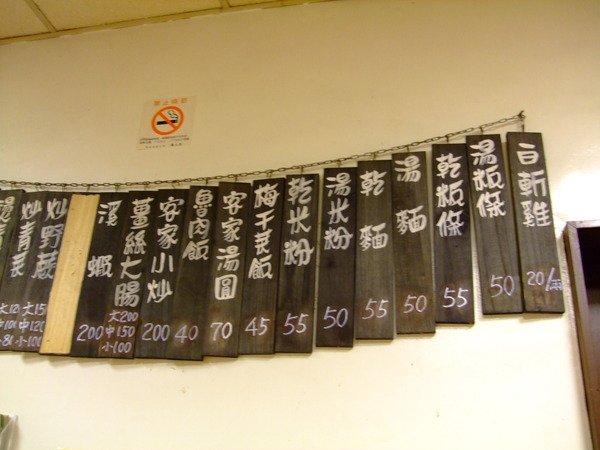 禁止吸菸
白斬雞 20/兩
湯粄條 50
乾粄條 55
湯麵 50
乾麵 55
湯米粉 50
乾米粉 55
梅干菜飯 45
客家湯圓 70
魯肉飯 40
客家小炒 200
薑絲大腸 大200 中150 小100
溪蝦 200
炒野蕨 大150 中120 小100
炒青菜